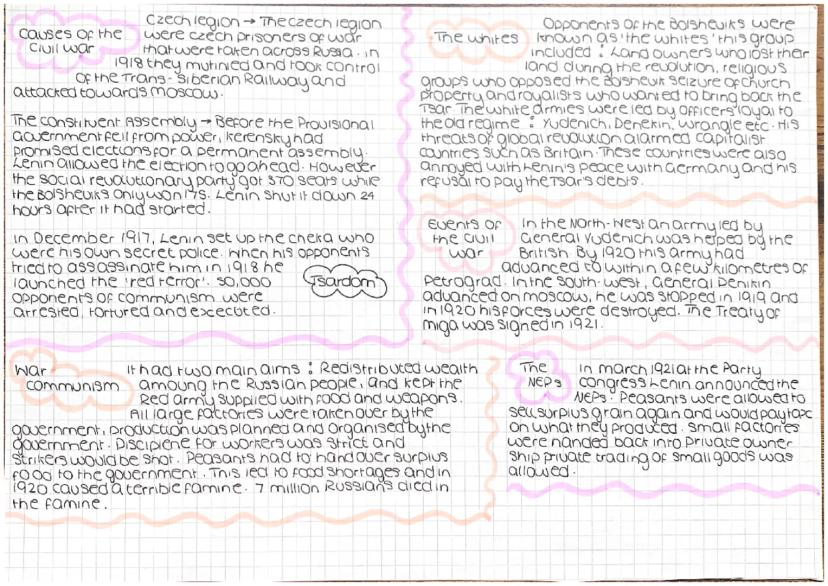 Causes of the
Civil war
Czech legion → The czech legion
were czech prisoners of war
that were taken across Russia. in
1918 they mutinied and took control
of the Trans-Siberian Railway and
attacked towards moscow.
The constituent Assembly → Before the Provisional
Government fell from power, kerensky had
promised elections for a permanent assembly.
Lenin allowed the election to go ahead. However
the social revoulutionary party got 370 seats while
the Bolsheviks only won 175. Lenin shut it down 24
hours after it had started.
In December 1917, Lenin set up the cheka who
were his own secret police. When his opponents
tried to assassinate him in 1918 he
launched the 'red terror'. 50,000
opponents of communism were
arrested, tortured and excecuted.
Tsardom
War
communism
It had two main aims : Redistributed wealth
amoung the Russian people, and kept the
Red army supplied with food and weapons.
All large factories were taken over by the
government, production was planned and organised by the
government. Discipiene for workers was strict and
strikers would be shot. Peasants had to hand over surplus
food to the government. This led to food shortages and in
1920 caused a terrible famine. 7 million Russians died in
the famine.
The whites
Opponents of the Bolsheviks were
known as 'the whites' this group
included : Land owners who lost their
land during the revolution, religious
groups who opposed the Bolshevik seizure of church
property and royalists who wanted to bring back the
Tsar. The white armies were led by officers loyal to
the old regime : Yudenich, Denekin, wrangle etc. His
threats of global revolution alarmed capitalist
countries such as Britain. These countries were also
annoyed with Lenin's peace with Germany and his
refusal to pay the Tsar's debts.
Events of
the civil
war
In the North-West an army led by
General Yudenich was helped by the
British. By 1920 this army had
advanced to within a few kilometres of
Petrograd. In the south-west, General Denikin
advanced on moscow, he was stopped in 1919 and
in 1920 his forces were destroyed. The Treaty of
miga was signed in 1921.
The
NEPs
in march 1921 at the Party
congress Lenin announced the
NEPs. Peasants were allowed to
sell surplus grain again and would pay tax
on what they produced. small factories
were handed back into private owner
ship private trading of small goods was
allowed.